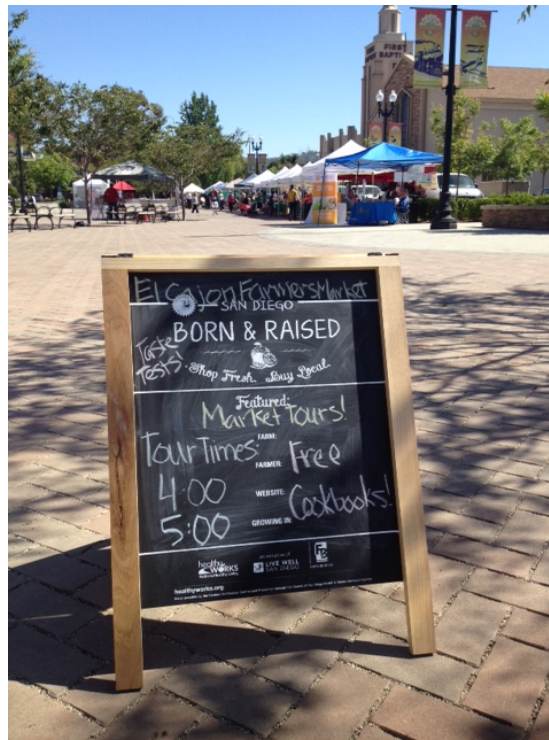 FIRST
BAPTIST
El Cajon Farmers Market
SAN DIEGO
BORN & RAISED
Taste Tests!
Shop Fresh. Buy Local.
Featured:
Market Tours!
FARM:
Tour Times:
FARMER: Free
4:00
WEBSITE: Cookbooks!
5:00
GROWING IN:
healthy WORKS
LIVE WELL
SAN DIEGO
healthyworks.org